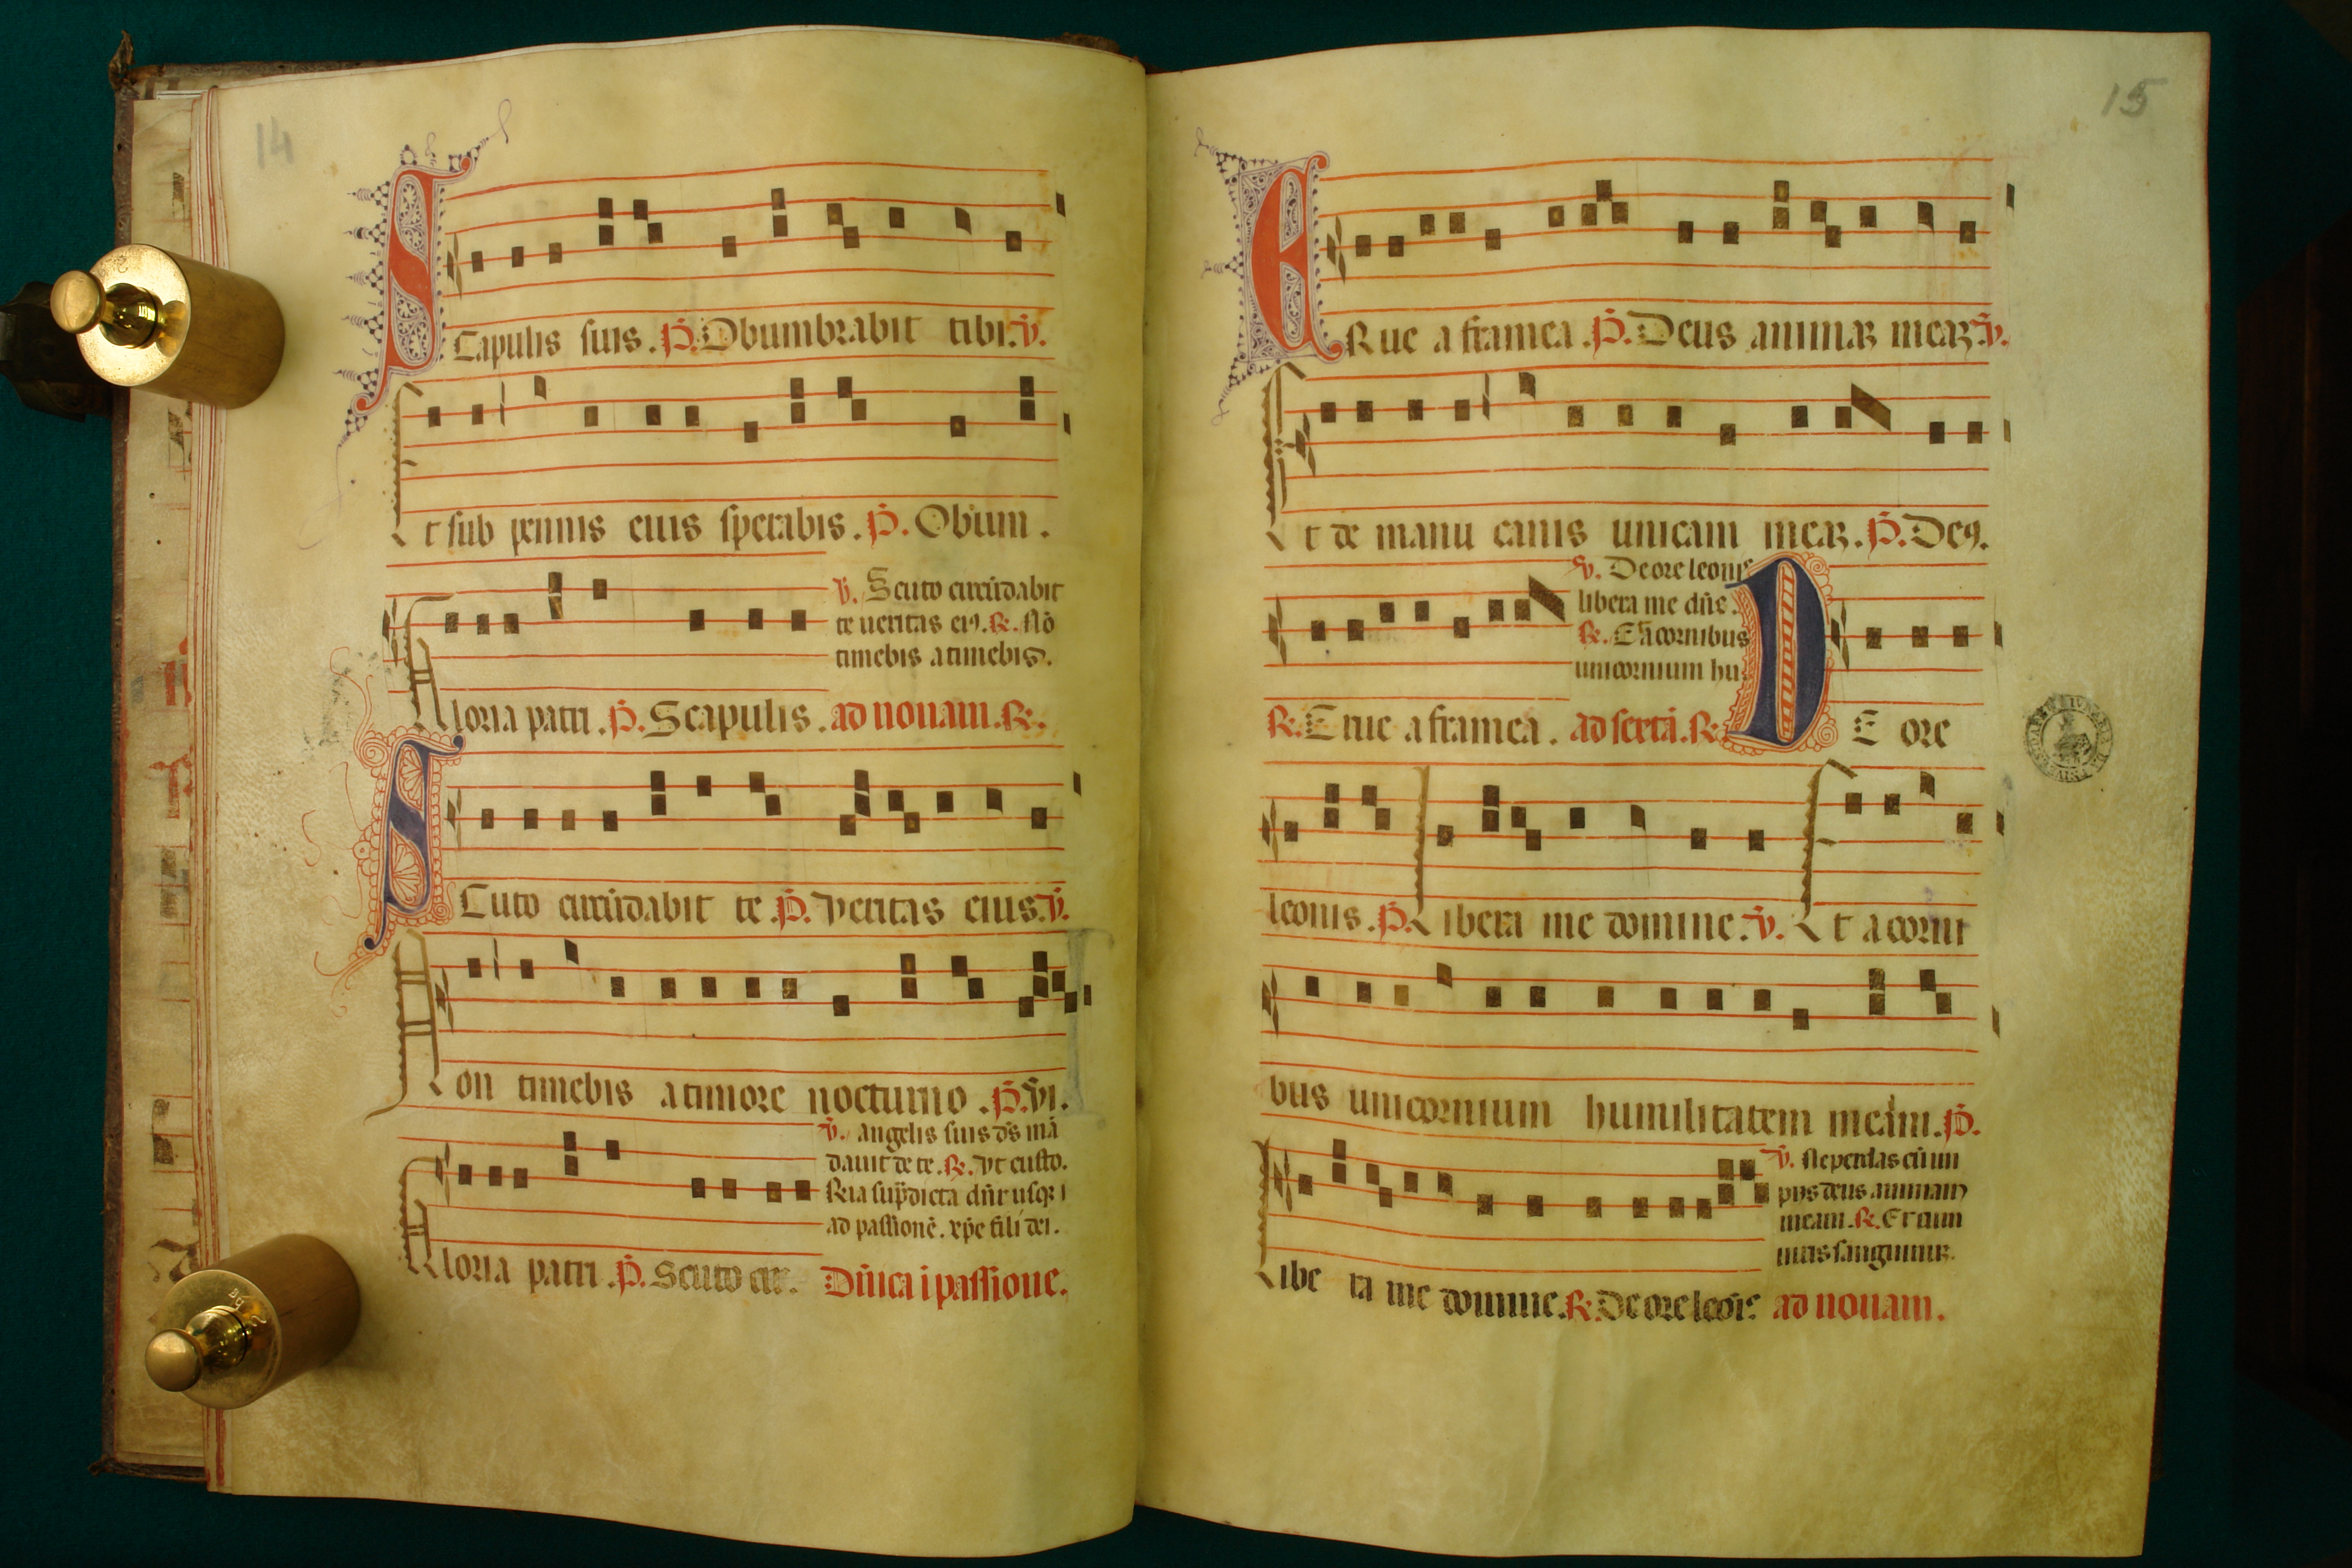 14
Scapulis suis. P. Obumbrabit tibi. v.
Et sub pennis eius sperabis. P. Obum.
v. Scuto circūdabit
te ueritas ei9. R. Nō
timebis a timebis.
Gloria patri. P. Scapulis. ad nonam. R.
Scuto circūdabit te. P. veritas eius. v.
Non timebis a timore nocturno. P. vi.
v. angelis suis ds mā
dauit de te. R. vt custo.
ad passionē. xpe fili dei.
Gloria patri. P. Scuto cir. Dnica i passione.
15
ERue a framea. P. Deus animaꝫ meaꝫ. v.
Et de manu canis unicam meaꝫ. P. De9.
v. De ore leonis
libera me dne.
R. Et a cornibus
unicornium hu
R. Erue a framea. ad sextā. R. DE ore
leonis. P. Libera me domine. v. Et a corni
bus unicornium humilitatem meam. P.
v. Ne perdas cū im
piis deus animam
meam. R. Et cum
uiris sanguinuꝫ.
Libe ra me domine. R. De ore leōis ad nonam.